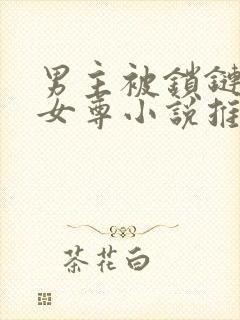 男主被鎖鏈
女尊小說推
茶花白